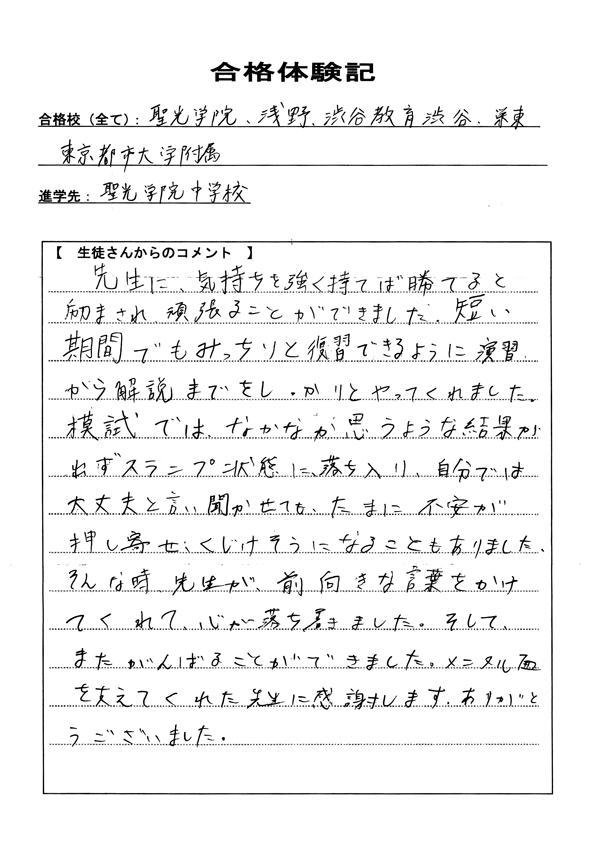 合格体験記
合格校（全て）：聖光学院、浅野、渋谷教育渋谷、栄東
東京都市大学附属
進学先：聖光学院中学校
【　生徒さんからのコメント　】
先生に、気持ちを強く持てば勝てると
励まされ、頑張ることができました。短い
期間でもみっちりと復習できるように演習
から解説までをしっかりとやってくれました。
模試では、なかなか思うような結果が
出ずスランプ状態に落ち入り、自分では
大丈夫と言い聞かせても、たまに不安が
押し寄せ、くじけそうになることもありました。
そんな時、先生が、前向きな言葉をかけ
てくれて、心が落ち着きました。そして、
またがんばることができました。メンタル面
を支えてくれた先生に感謝します。ありがと
うございました。